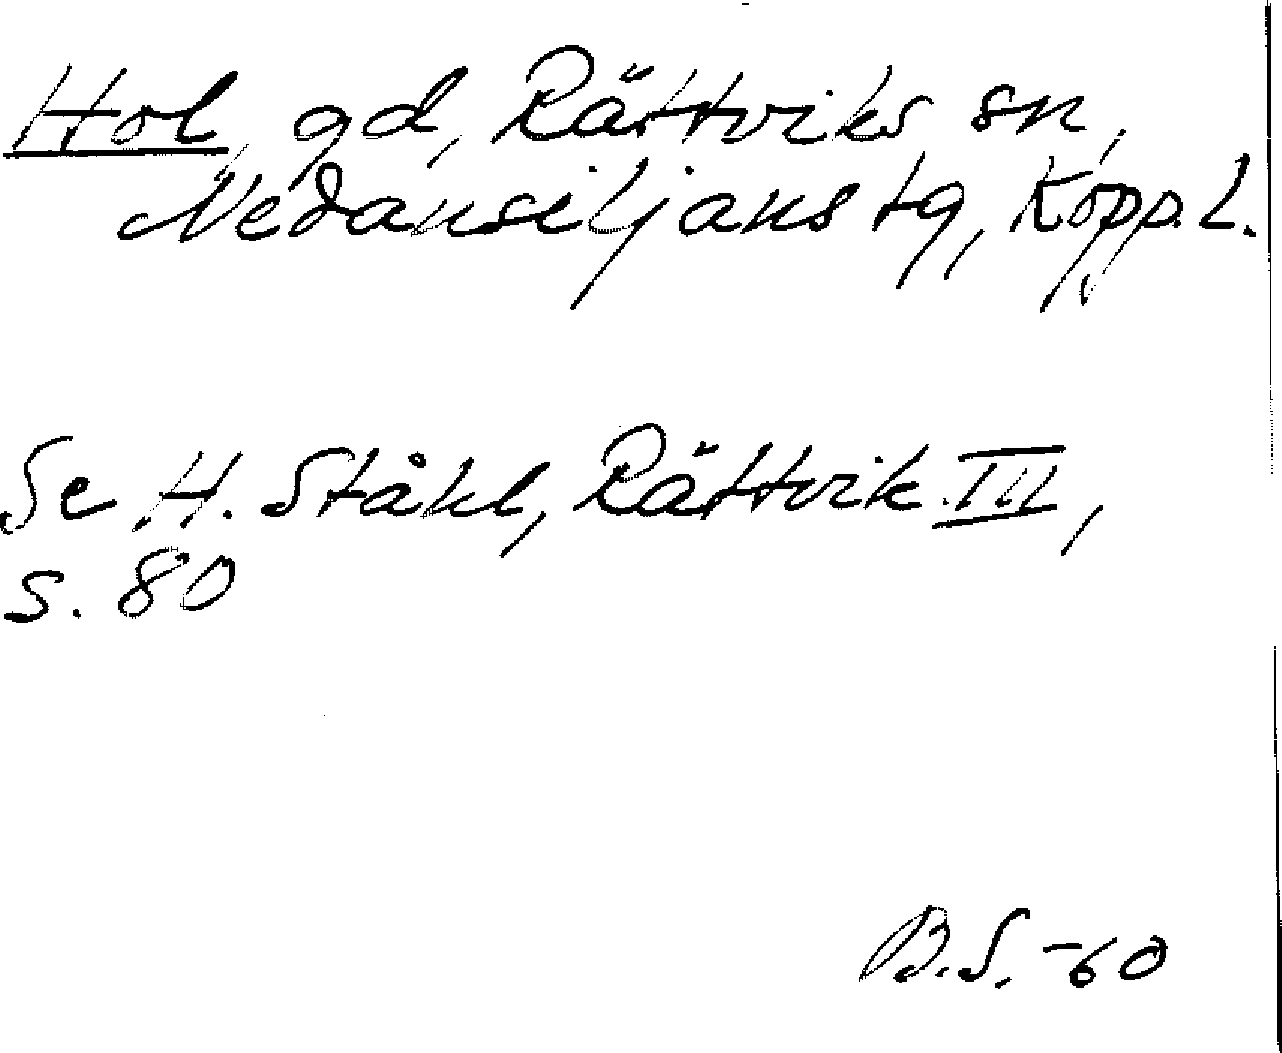 Hol, gd, Rättviks sn,
Nedansiljans tg, Kopp. L.
Se H. Ståhl, Rättvik III,
s. 80
B.S. -60